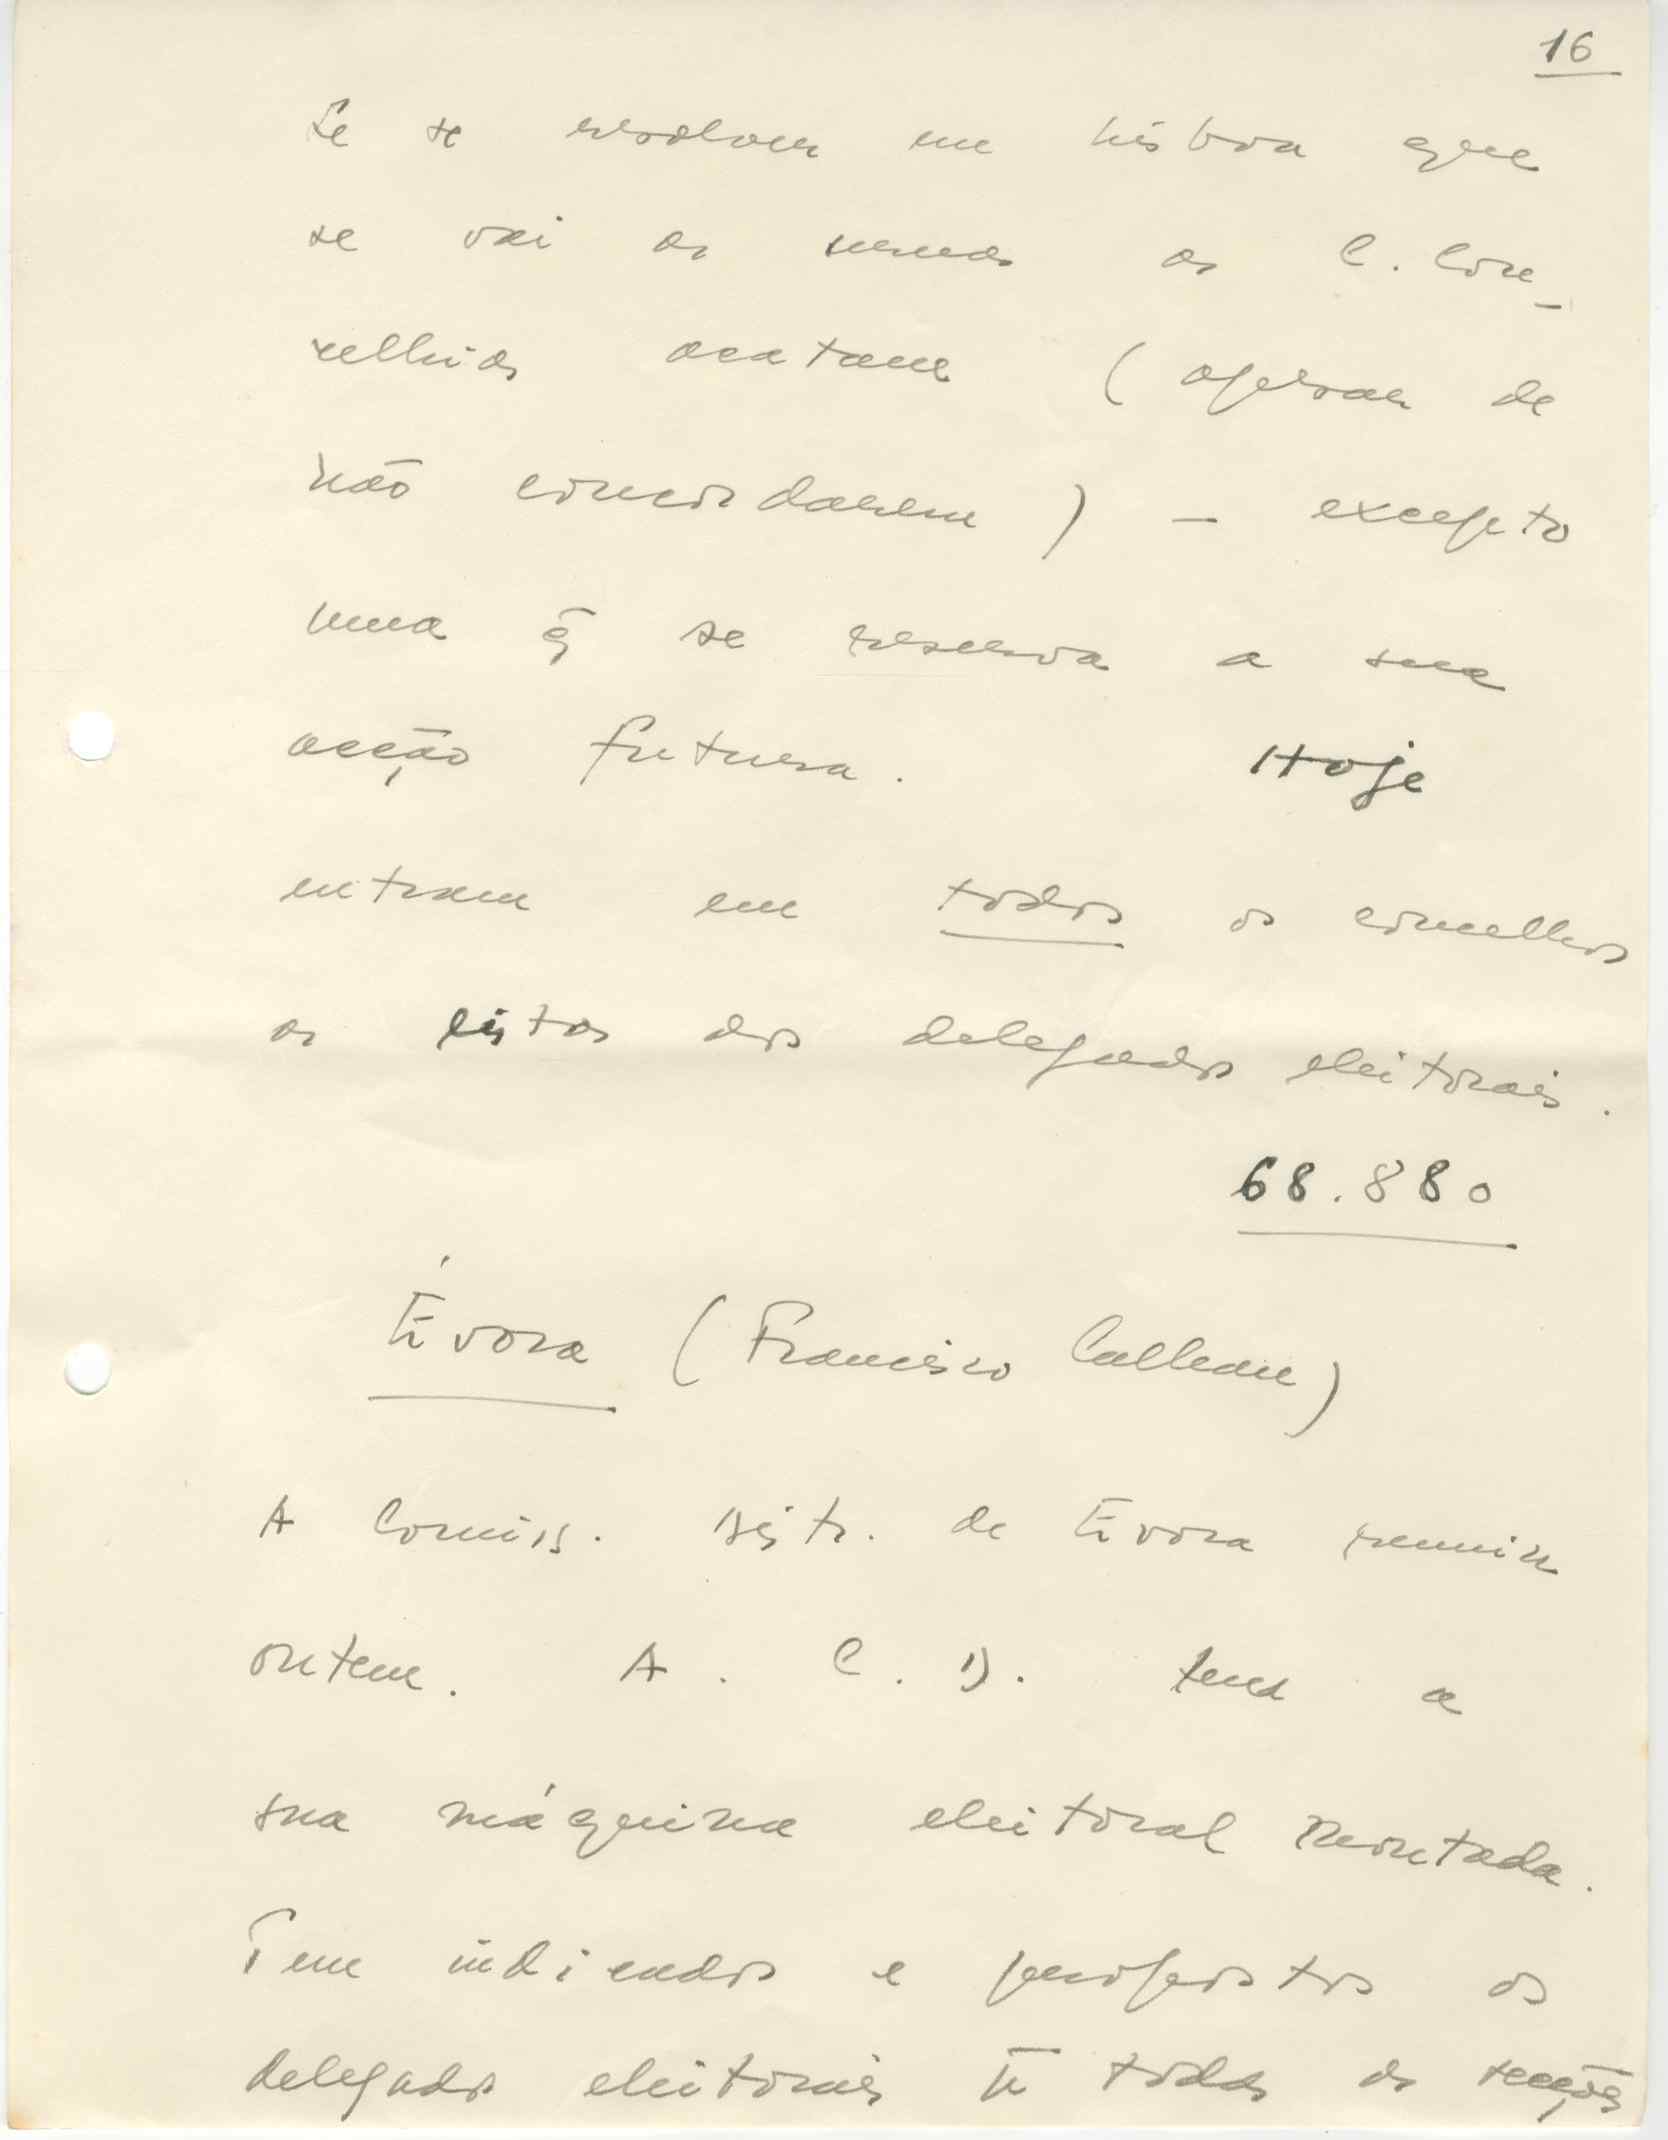 16
Se se resolver em Lisboa que
se vai às urnas as C. Con-
celhias acatam (apesar de
não concordarem) – excepto
uma q̃ se reserva a sua
acção futura. Hoje
entram em todos os concelhos
as listas dos delegados eleitorais.
68.880
Évora (Francisco Calhau)
A Comiss. Distr. de Évora reuniu
ontem. A C. D. tem a
sua máquina eleitoral montada.
Tem indicados e propostos os
delegados eleitorais p̃ todas as secções